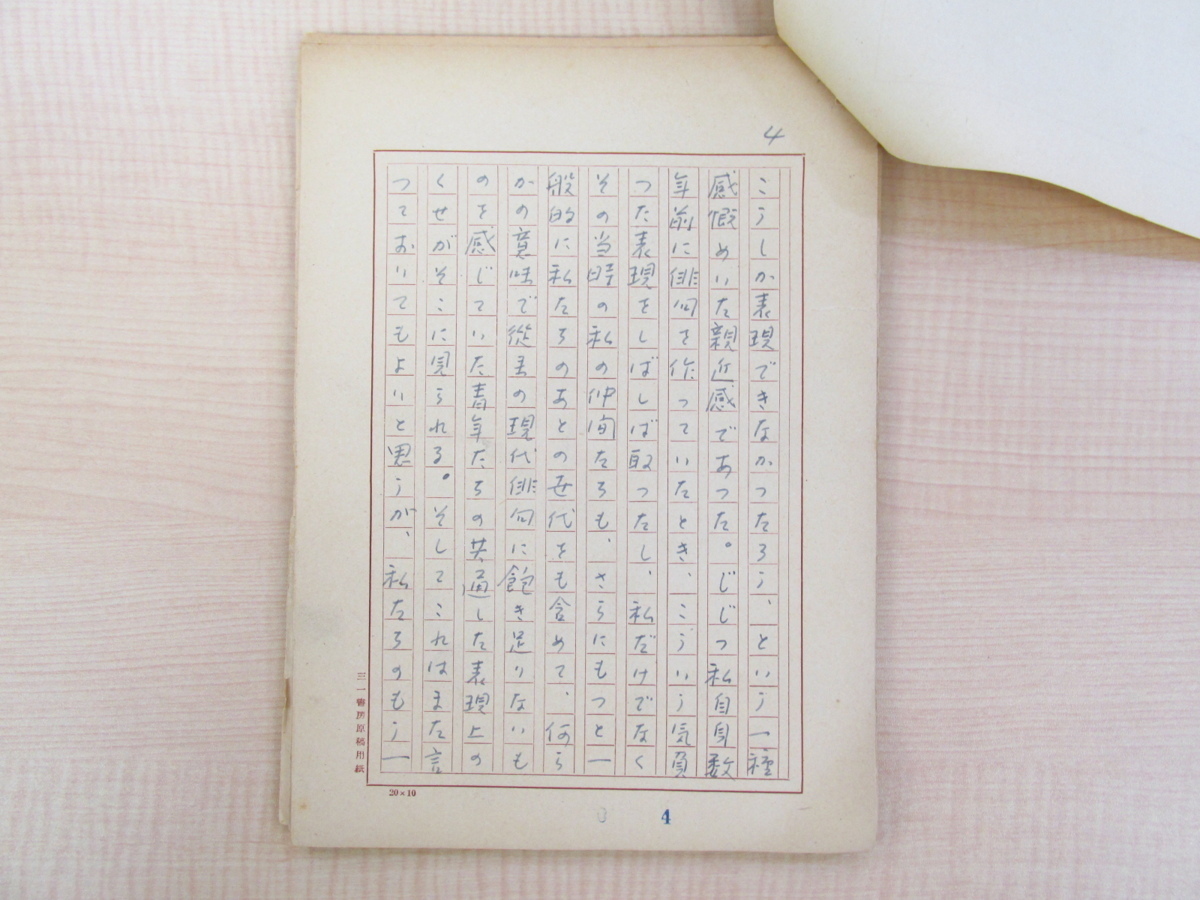 4
こうしか表現できなかつたろう、という一種
感慨めいた親近感であつた。じじつ私自身数
年前に俳句を作っていたとき、こういう気負
つた表現をしばしば取つたし、私だけでなく
その当時の私の仲間たちも、さらにもつと一
般的に私たちのあとの世代をも含めて、何ら
かの意味で従来の現代俳句に飽き足りないも
のを感じていた青年たちの共通した表現上の
くせがそこに見られる。そしてこれはまた言
つておいてもよいと思うが、私たちのもう一
三一書房原稿用紙
20×10
4